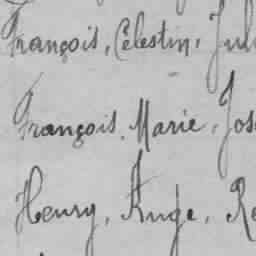 François, Célestin, Jul
François, Marie, Jos
Henry, Ange, Re